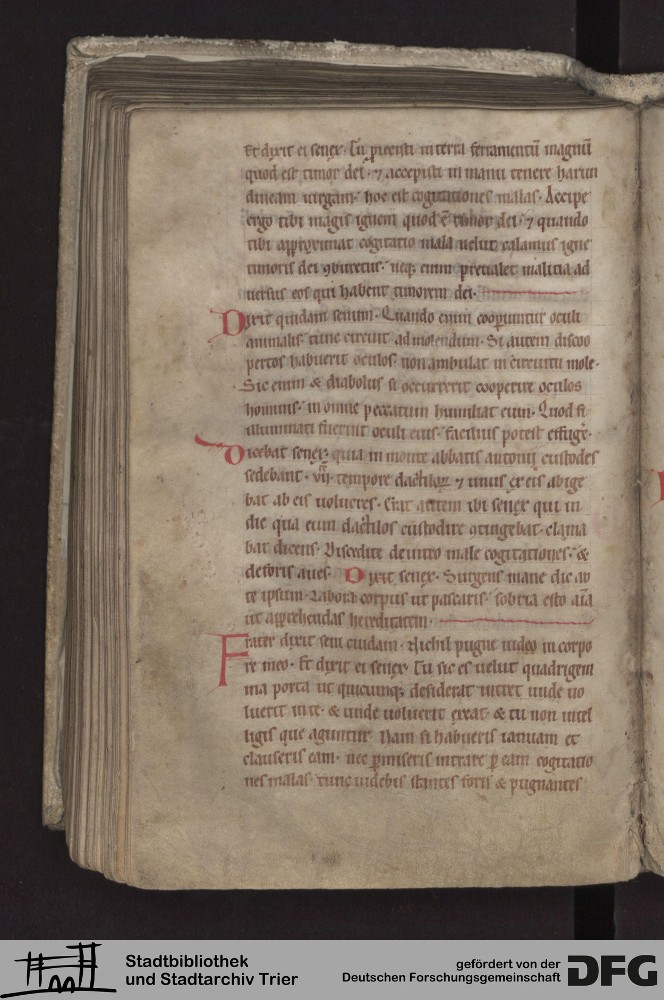 Et dixit ei senex. Tu proiecisti in terra ferramentū magnū
quod est timor dei. ⁊ accepisti in manu tenere harun
dineam uirgam. hoc est cogitationes malas. Accipe
ergo tibi magis ignem quod ē timor dei. ⁊ quando
tibi appropimat cogitatio mala uelut calamus igne
timoris dei ꝯburetur. neq; enim p̄ualet malitia ad
uersus eos qui habent timorem dei.
Dixit quidam senum. Quando enim cooꝑiuntur oculi
animalis. tunc circuit ad molendum. Si autem discoo
pertos habuerit oculos. non ambulat in circuitu mole.
Sic enim & diabolus si occurrerit cooperire oculos
hominis. in omne peccatum humiliat eum. Quod si
illuminati fuerint oculi eius. facilius potest effuge᷒.
Dicebat senex. quia in monte abbatis antonij custodes
sedebant. vij. tempore dactiloꝝ ⁊ unus ex eis abige
bat ab eis uolucres. Erat autem ibi senex qui in
die qua eum dactilos custodire ꝯtingebat. clama
bat dicens. Discedite deintro male cogitationes. &
deforis aues. Dixit senex. Surgens mane dic ad
te ipsum. Labora corpus ut pascaris. sobria esto aīa
ut app̄hendas hereditatem.
Frater dixit seni cuidam. Nichil pugne uideo in corpo
re meo. Et dixit ei senex. Tu sic es uelut quadrigem
ina porta ut quicumq; desiderat intret unde uo
luerit in te. & unde uoluerit exeat. & tu non intel
ligis que aguntur. Nam si habueris ianuam et
clauseris eam. nec ꝑmiseris intrare ꝑ eam cogitatio
nes malas. tunc uidebis stantes foris & pugnantes
Stadtbibliothek
und Stadtarchiv Trier
gefördert von der
Deutschen Forschungsgemeinschaft
DFG